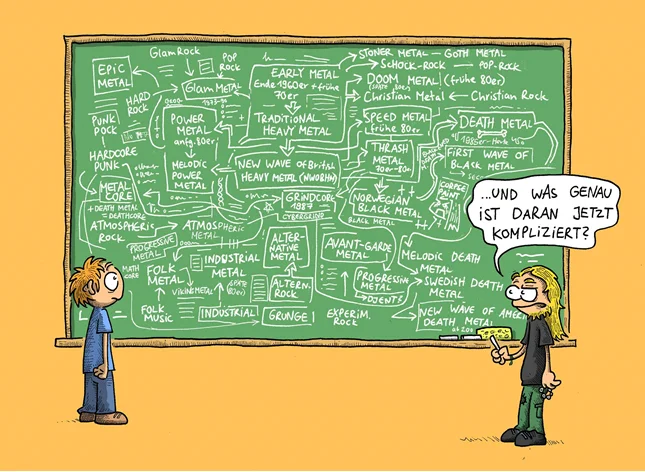 Glam Rock
POP
ROCK
STONER METAL — GOTH METAL
SCHOCK-ROCK ← POP-ROCK
EPIC
METAL
Glam METAL
EARLY METAL
Ende 1960er + frühe
70er
DOOM METAL (frühe 80er)
Christian Metal ← Christian Rock
HARD
ROCK
PUNK
POCK
POWER
METAL
anfg. 80er
TRADITIONAL
HEAVY METAL
SPEED METAL
frühe 80er
DEATH METAL
HARDCORE
PUNK
MELODIC
POWER
METAL
NEW WAVE OF British
HEAVY METAL (NWOBHM)
THRASH
METAL
70er-80er
FIRST WAVE OF
BLACK METAL
METAL
CORE
+ DEATH METAL
= DEATHCORE
GRINDCORE
1987
CYBERGRIND
NORWEGIAN
BLACK METAL
BLACK METAL
CORPSE
PAINT
...UND WAS GENAU
IST DARAN JETZT
KOMPLIZIERT?
ATMOSPHERIC
ROCK
ATMOSPHERIC
METAL
PROGRESSIVE
METAL
ALTER-
NATIVE
METAL
AVANT-GARDE
METAL
MELODIC DEATH
METAL
MATH
CORE
FOLK
METAL
INDUSTRIAL
METAL
(SPÄTE
80er)
VIKINGMETAL
ALTERN.
ROCK
PROGRESSIVE
METAL
DJENT
SWEDISH DEATH
METAL
FOLK
MUSIC
INDUSTRIAL
GRUNGE
EXPERIM.
ROCK
NEW WAVE OF AMERI
DEATH METAL